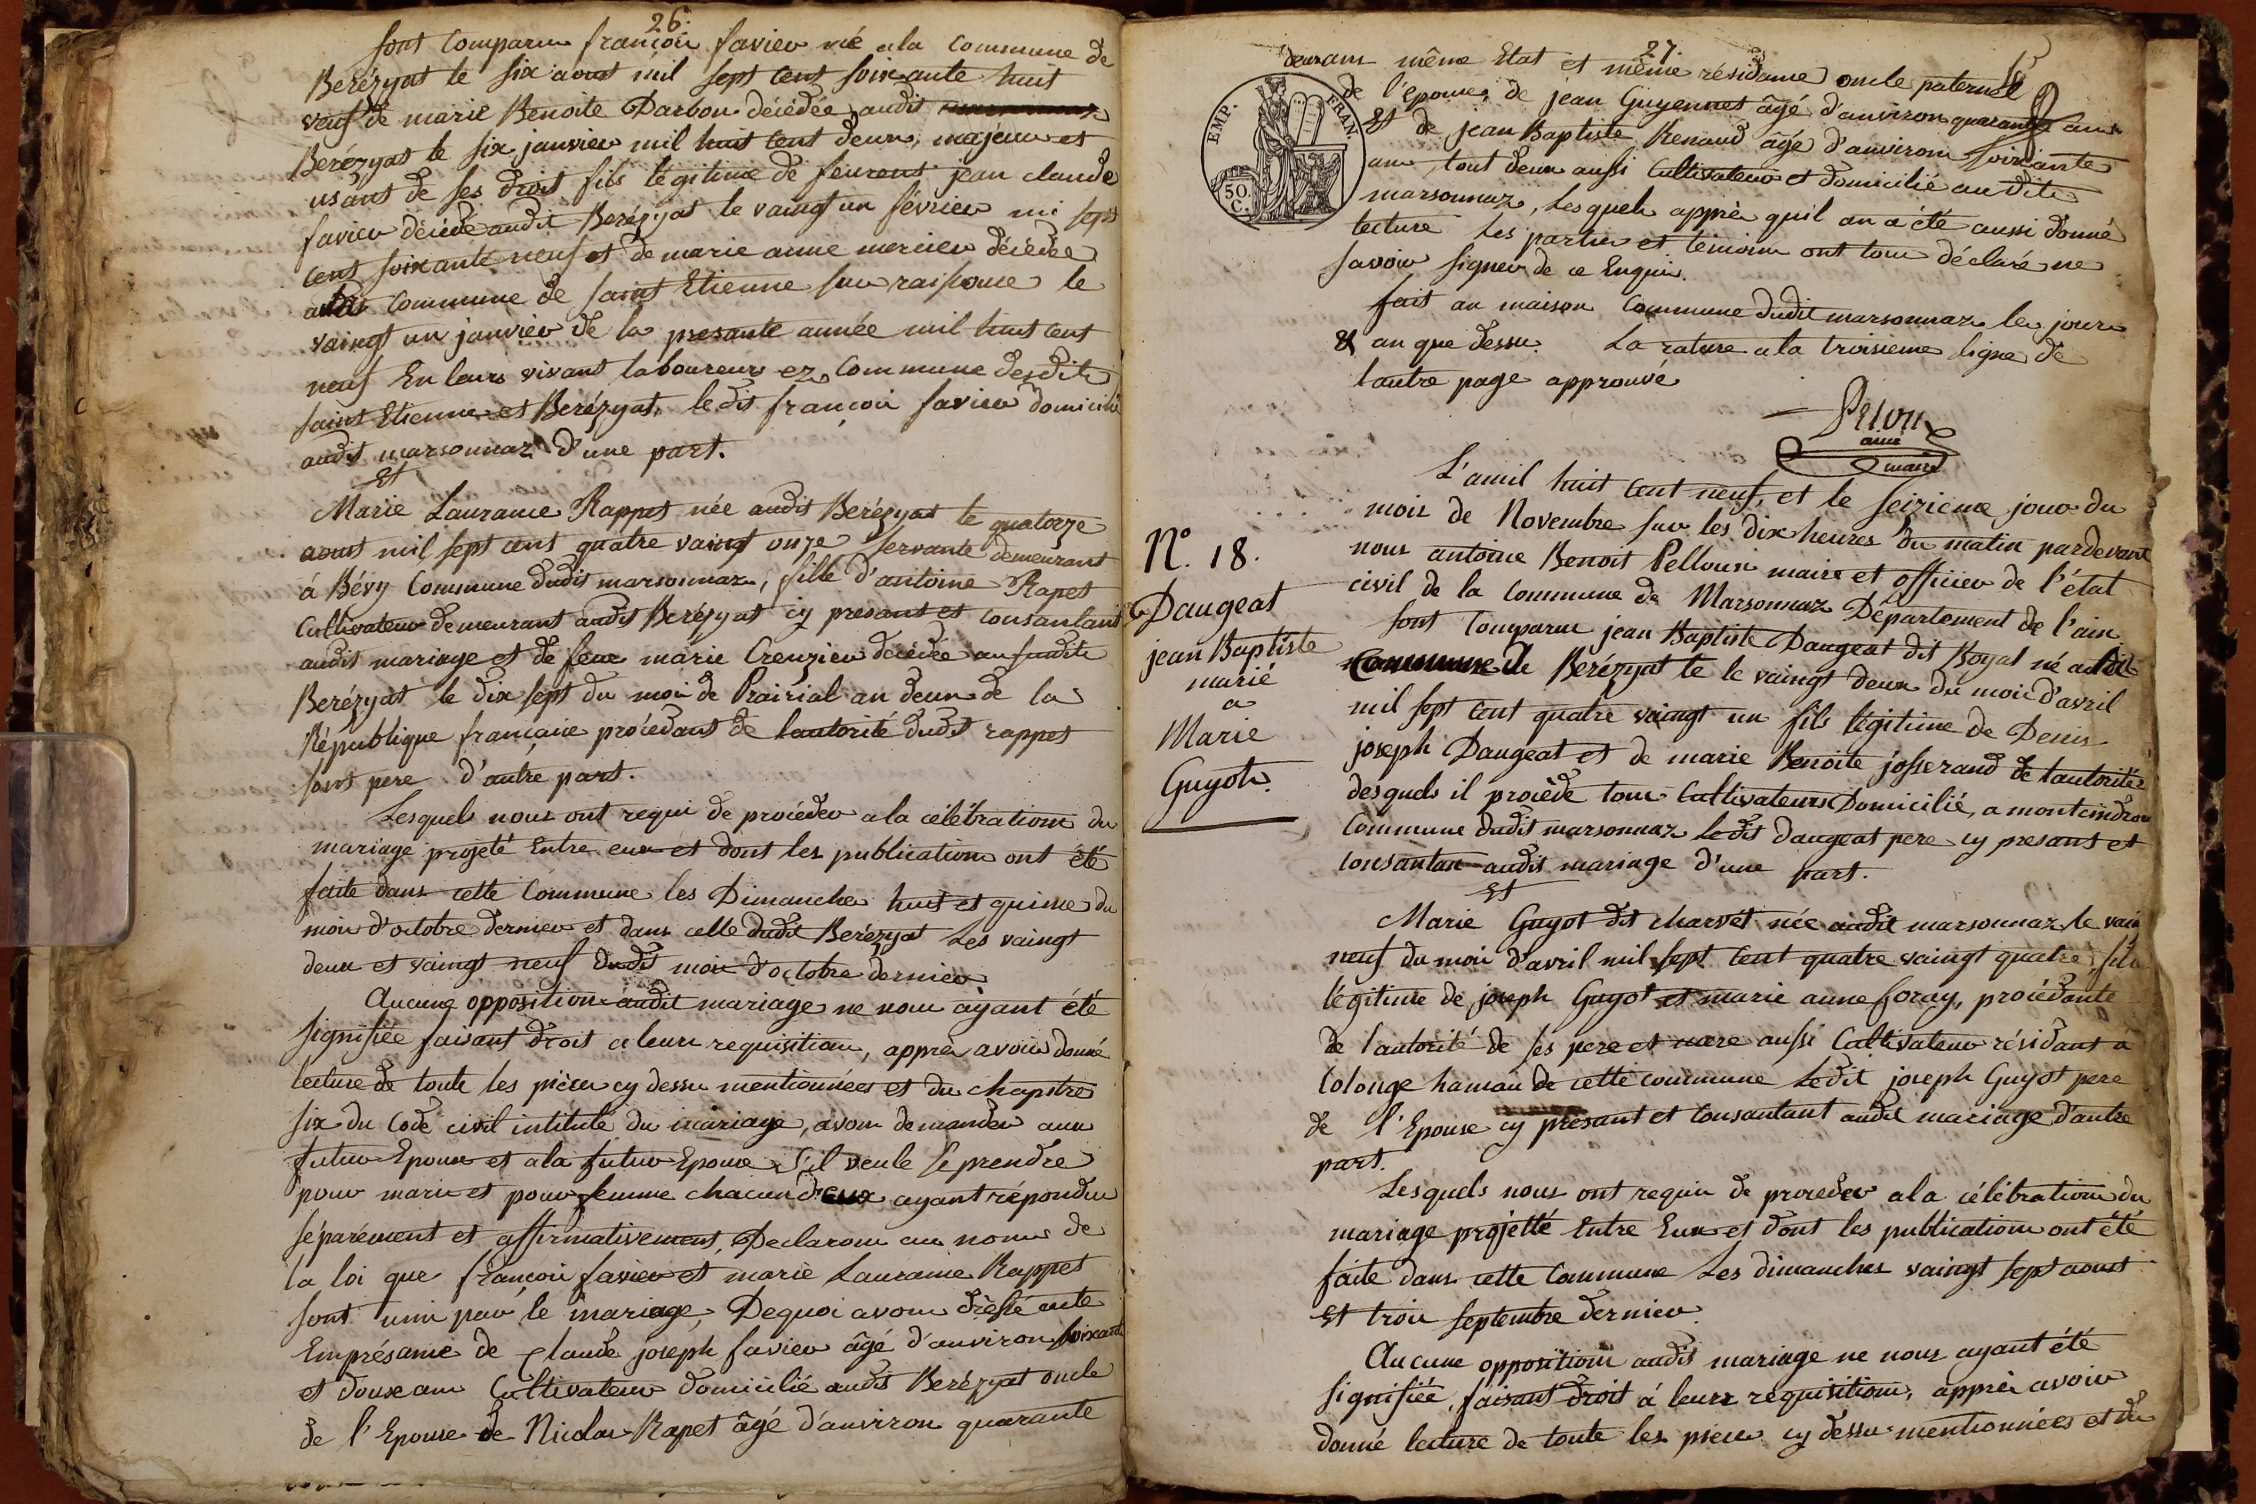 26.
sont comparu françois favier né a la Commune de
Berézyat le six aout mil sept cent soixante huit
veuf de marie Benoite Darbon décédée audit
Berézyat le six janvier mil huit cent deux, majeur et
usant de ses droit fils légitime de feurent jean claude
favier décédé audit Berézyat le vaingt un février mi sept
cent soixante neuf et de marie anne mercier décédée
commune de saint Etienne sur raisouce le
vaingt un janvier de la presante année mil huit cent
neuf En leurs vivant laboureurs ez Commune desdit
saint Etienne et Berézyat, ledit françois favier domicilié
audit marsonnaz d'une part.
Et
Marie Laurance Rappet née audit Berézyat le quatorze
aout mil sept cent quatre vaingt onze servante demeurant
à Bévy Commune dudit marsonnaz, fille d'antoine Rapet
Cultivateur demeurant audit Berézyat cy presant et consantant
audit mariage et de feue marie Creuzieu décédée au susdit
Berézyat le dix sept du mois de Prairial an deux de la
République française procédant de l'autorité dudit rappet
sont pere d'autre part.
Lesquels nous ont requi de procéder a la célébration du
mariage projeté Entre eux et dont les publication ont été
faite dans cette Commune les Dimanche huit et quinze du
mois d'octobre dernier et dans celle dudit Berézyat Les vaingt
deux et vaingt neuf dudit mois d'octobre dernier.
Aucune opposition audit mariage ne nous ayant été
signifiée faisant droit a leur requisition, apprès avoir donné
lecture de toute les pièces cy dessu mentionnées et du chapitre
six du Code civil intitulé du mariage, avons demander aux
futur Epoux et a la futur Epouse s'il veule se prendre
pour mari et pour femme chacun d'eux ayant répondu
séparément et affirmativement, Declarons au nom de
la loi que françois favier et marie Laurance Rappet
sont unis par le mariage, Dequoi avons dressé acte
En présance de Claude joseph favier âgé d'anviron soixante
et douze ans Cultivateur domicilié audit Berézyat oncle
de l'Epouse de Nicolas Rapet âgé d'anviron quarante
27.
deux ans même Etat et même résidance oncle paternel
de l'epouse, de jean Guyennet âgé d'anviron quarante ans
Et de jean Baptiste Renaud âgé d'anviron soixante
ans tout deux aussi Cultivateur et domicilié au dit
marsonnaz, Lesquels apprès quil an a été aussi donné
lecture Les partie et témoins ont tous déclaré ne
savoir signer de ce Enquis.
fait an maison Commune dudit marsonnaz les jour
& an que dessu. La rature a la troisieme ligne de
l'autre page approuvé
EMP. FRAN.
50 C.
Pelou
ainé
maire
N.º 18.
Daugeat
jean Baptiste
marié
a
Marie
Guyot.
L'amil huit cent neuf, et le seizieme jour du
mois de Novembre sur les dix heures du matin pardevant
nous antoine Benoit Pelloux maire et officier de l'état
civil de la Commune de Marsonnaz Département de l'ain
sont Comparu jean Baptiste Daugeat dit Boyat né audit
Berézyat le le vaingt deux du mois d'avril
mil sept cent quatre vaingt un fils légitime de Denis
joseph Daugeat et de marie Benoite josserand de l'autorité
desquels il procède tous Cultivateurs Domicilié, a montcindrou
Commune dudit marsonnaz ledit daugeat pere cy presant et
consantan audit mariage d'une part.
Et
Marie Guyot dit charvet née audit marsonnaz le vain
neuf du mois d'avril mil sept cent quatre vaingt quatre, fille
légitime de joseph Guyot et marie anne foray, procédante
de l'autorité de ses pere et mere aussi Cultivateur résidant à
Colonge hamau de cette commune Ledit joseph Guyot pere
de l'Epouse cy présant et Consantant audit mariage d'autre
part.
Lesquels nous ont requis de proceder a la célébration du
mariage projetté Entre Eux et dont les publication ont été
faite dans cette Commune Les dimanches vaingt sept aout
Et trois septembre dernier.
Aucune opposition audit mariage ne nous ayant été
signifiée, faisant droit à leurs requisition, apprès avoir
donné lecture de toute les piece cy dessu mentionnées et du